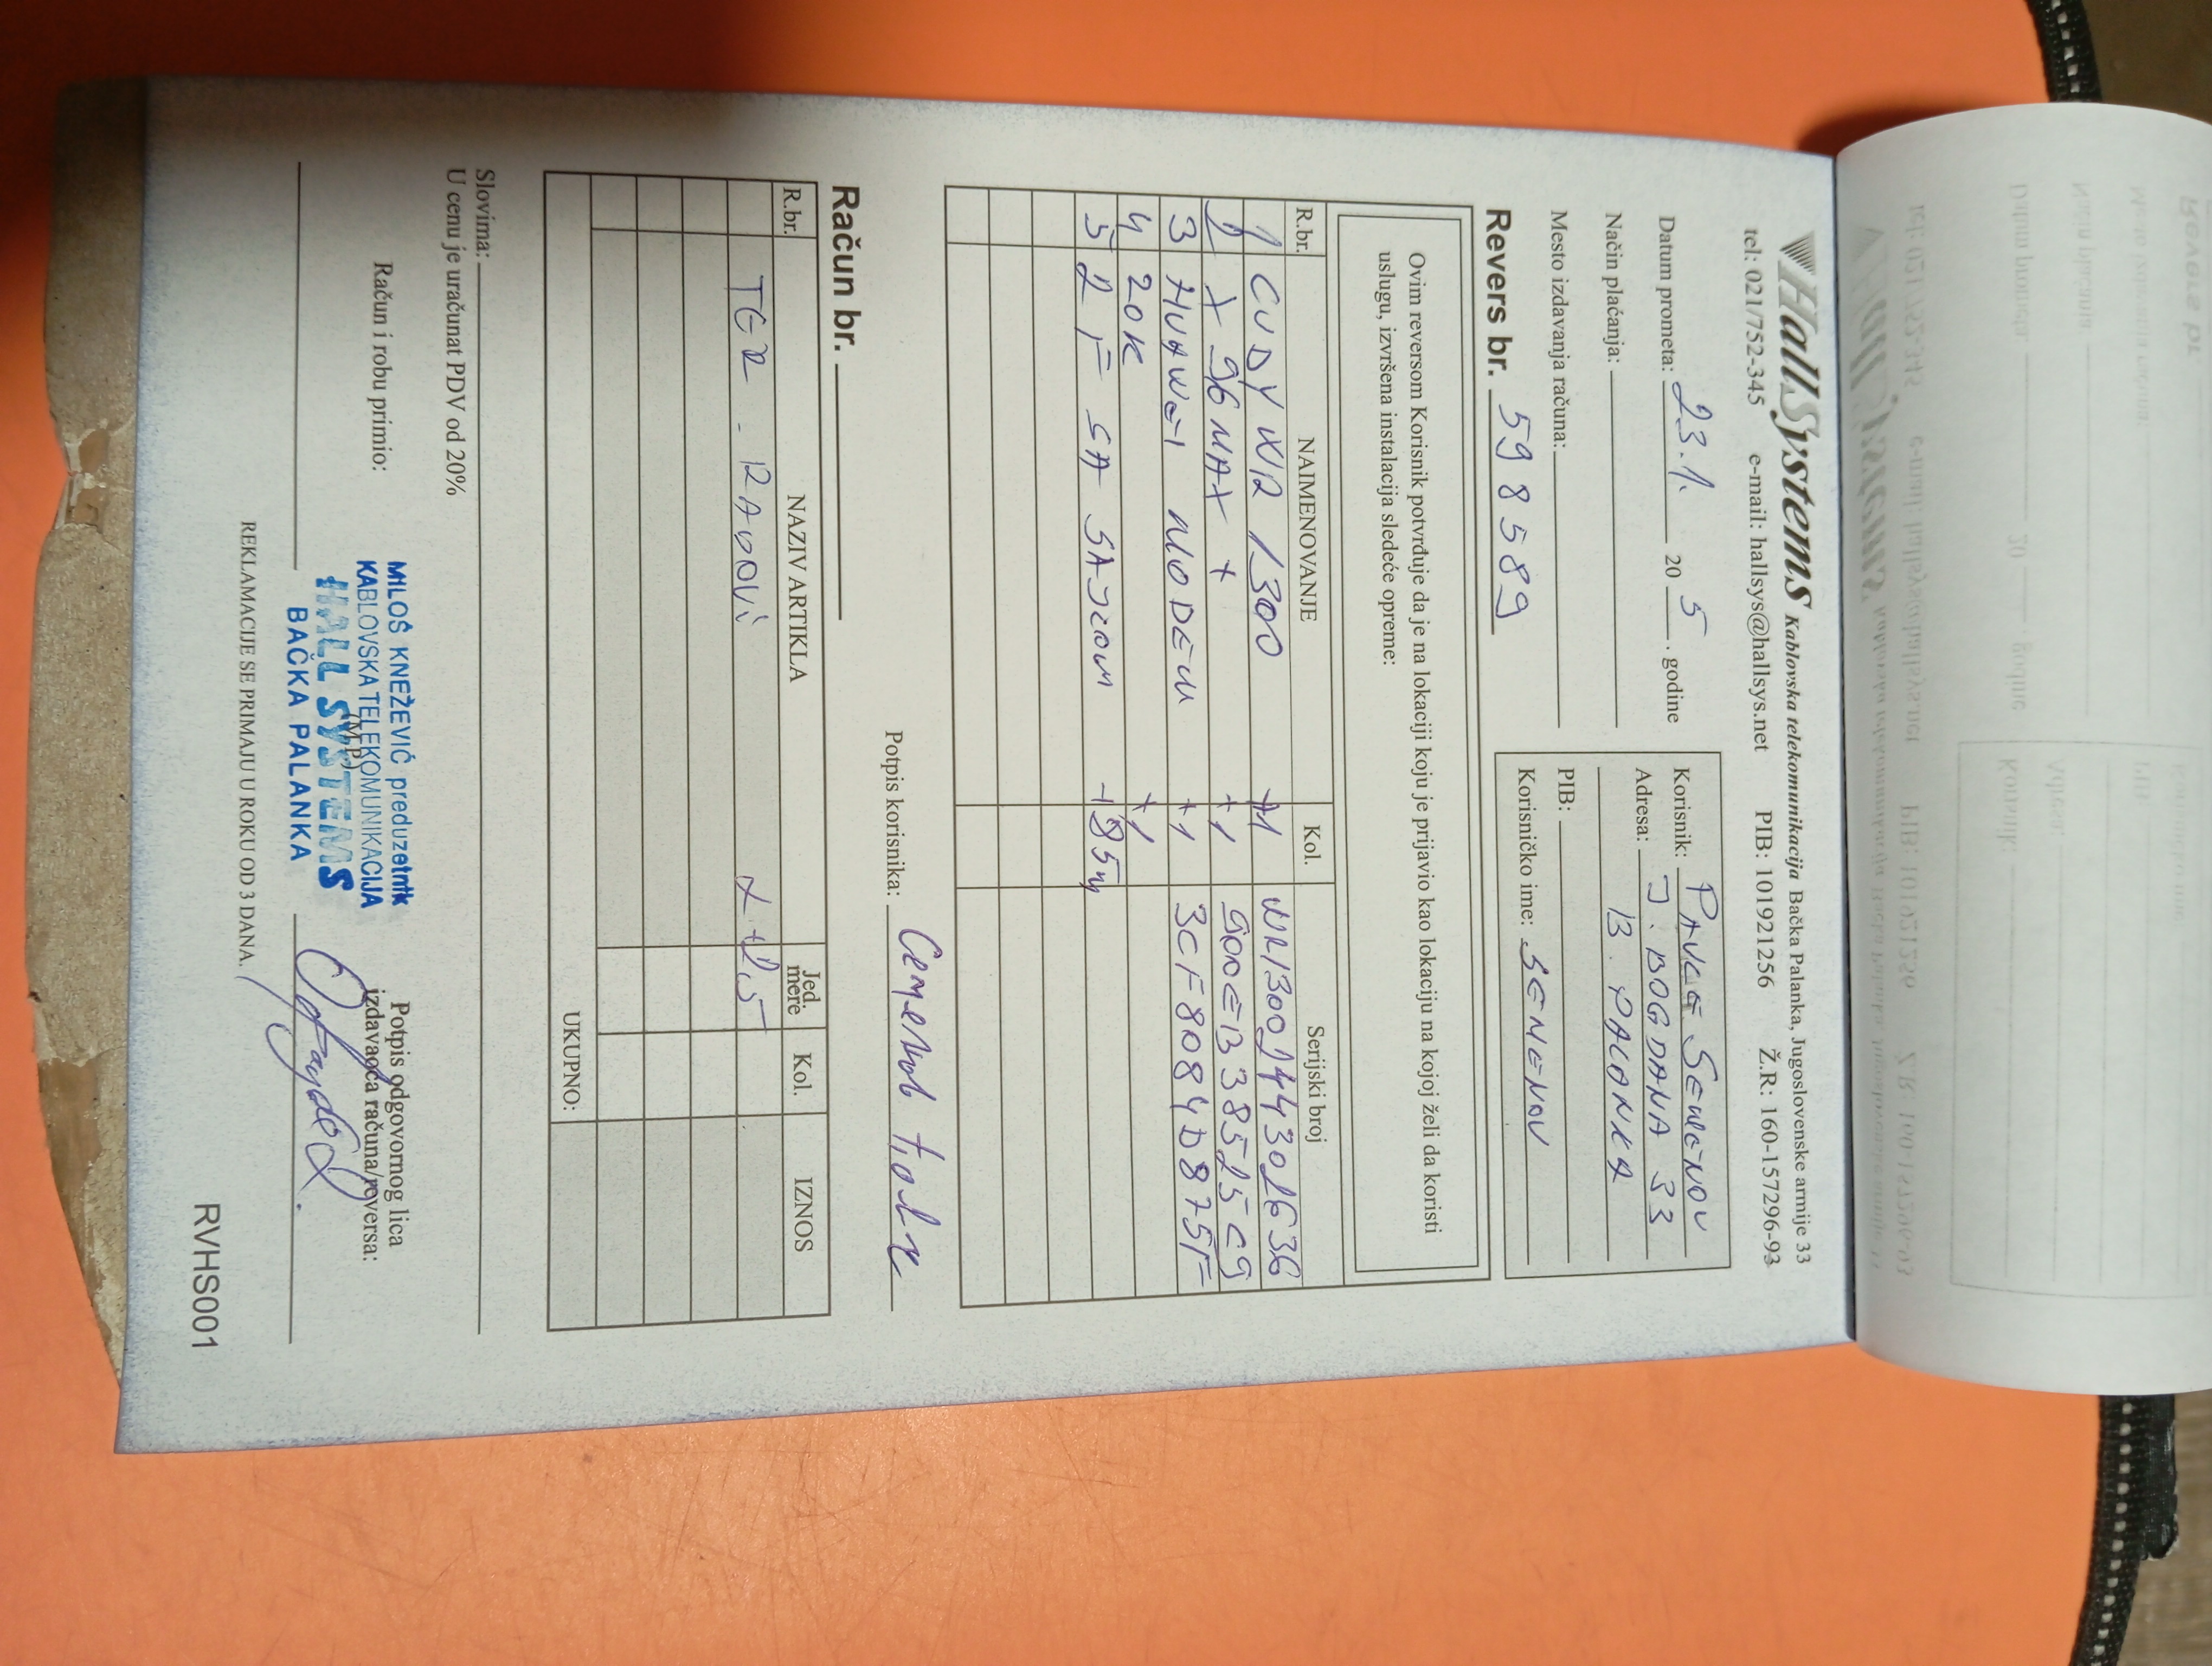 HallSystems Kablovska telekomunikacija Bačka Palanka, Jugoslovenske armije 33
tel: 021/752-345 e-mail: hallsys@hallsys.net PIB: 101921256 Ž.R.: 160-157296-93
Datum prometa: 23.1. 20 5 . godine
Način plaćanja:
Mesto izdavanja računa:
Korisnik: PAVLE SEMENOV
Adresa: J. BOGDANA 33
B. PALANKA
PIB:
Korisničko ime: SEMENOV
Revers br. 598589
Ovim reversom Korisnik potvrđuje da je na lokaciji koju je prijavio kao lokaciju na kojoj želi da koristi
uslugu, izvršena instalacija sledeće opreme:
R.br. NAIMENOVANJE Kol. Serijski broj
1 CUDY WR 1300 +1
X 96 MAX + +1
3 HUAWEI MODEM +1 3CF8084D875F
4 ZOK +1
5 2 F SA SAJLOM 185m
Potpis korisnika:
Račun br.
R.br. NAZIV ARTIKLA Jed. mere Kol. IZNOS
UKUPNO:
Slovima:
U cenu je uračunat PDV od 20%
Račun i robu primio:
MILOŠ KNEŽEVIĆ preduzetnik
KABLOVSKA TELEKOMUNIKACIJA
(M.P.)
HALL SYSTEMS
BAČKA PALANKA
Potpis odgovornog lica
izdavaoca računa/reversa:
REKLAMACIJE SE PRIMAJU U ROKU OD 3 DANA.
RVHS001